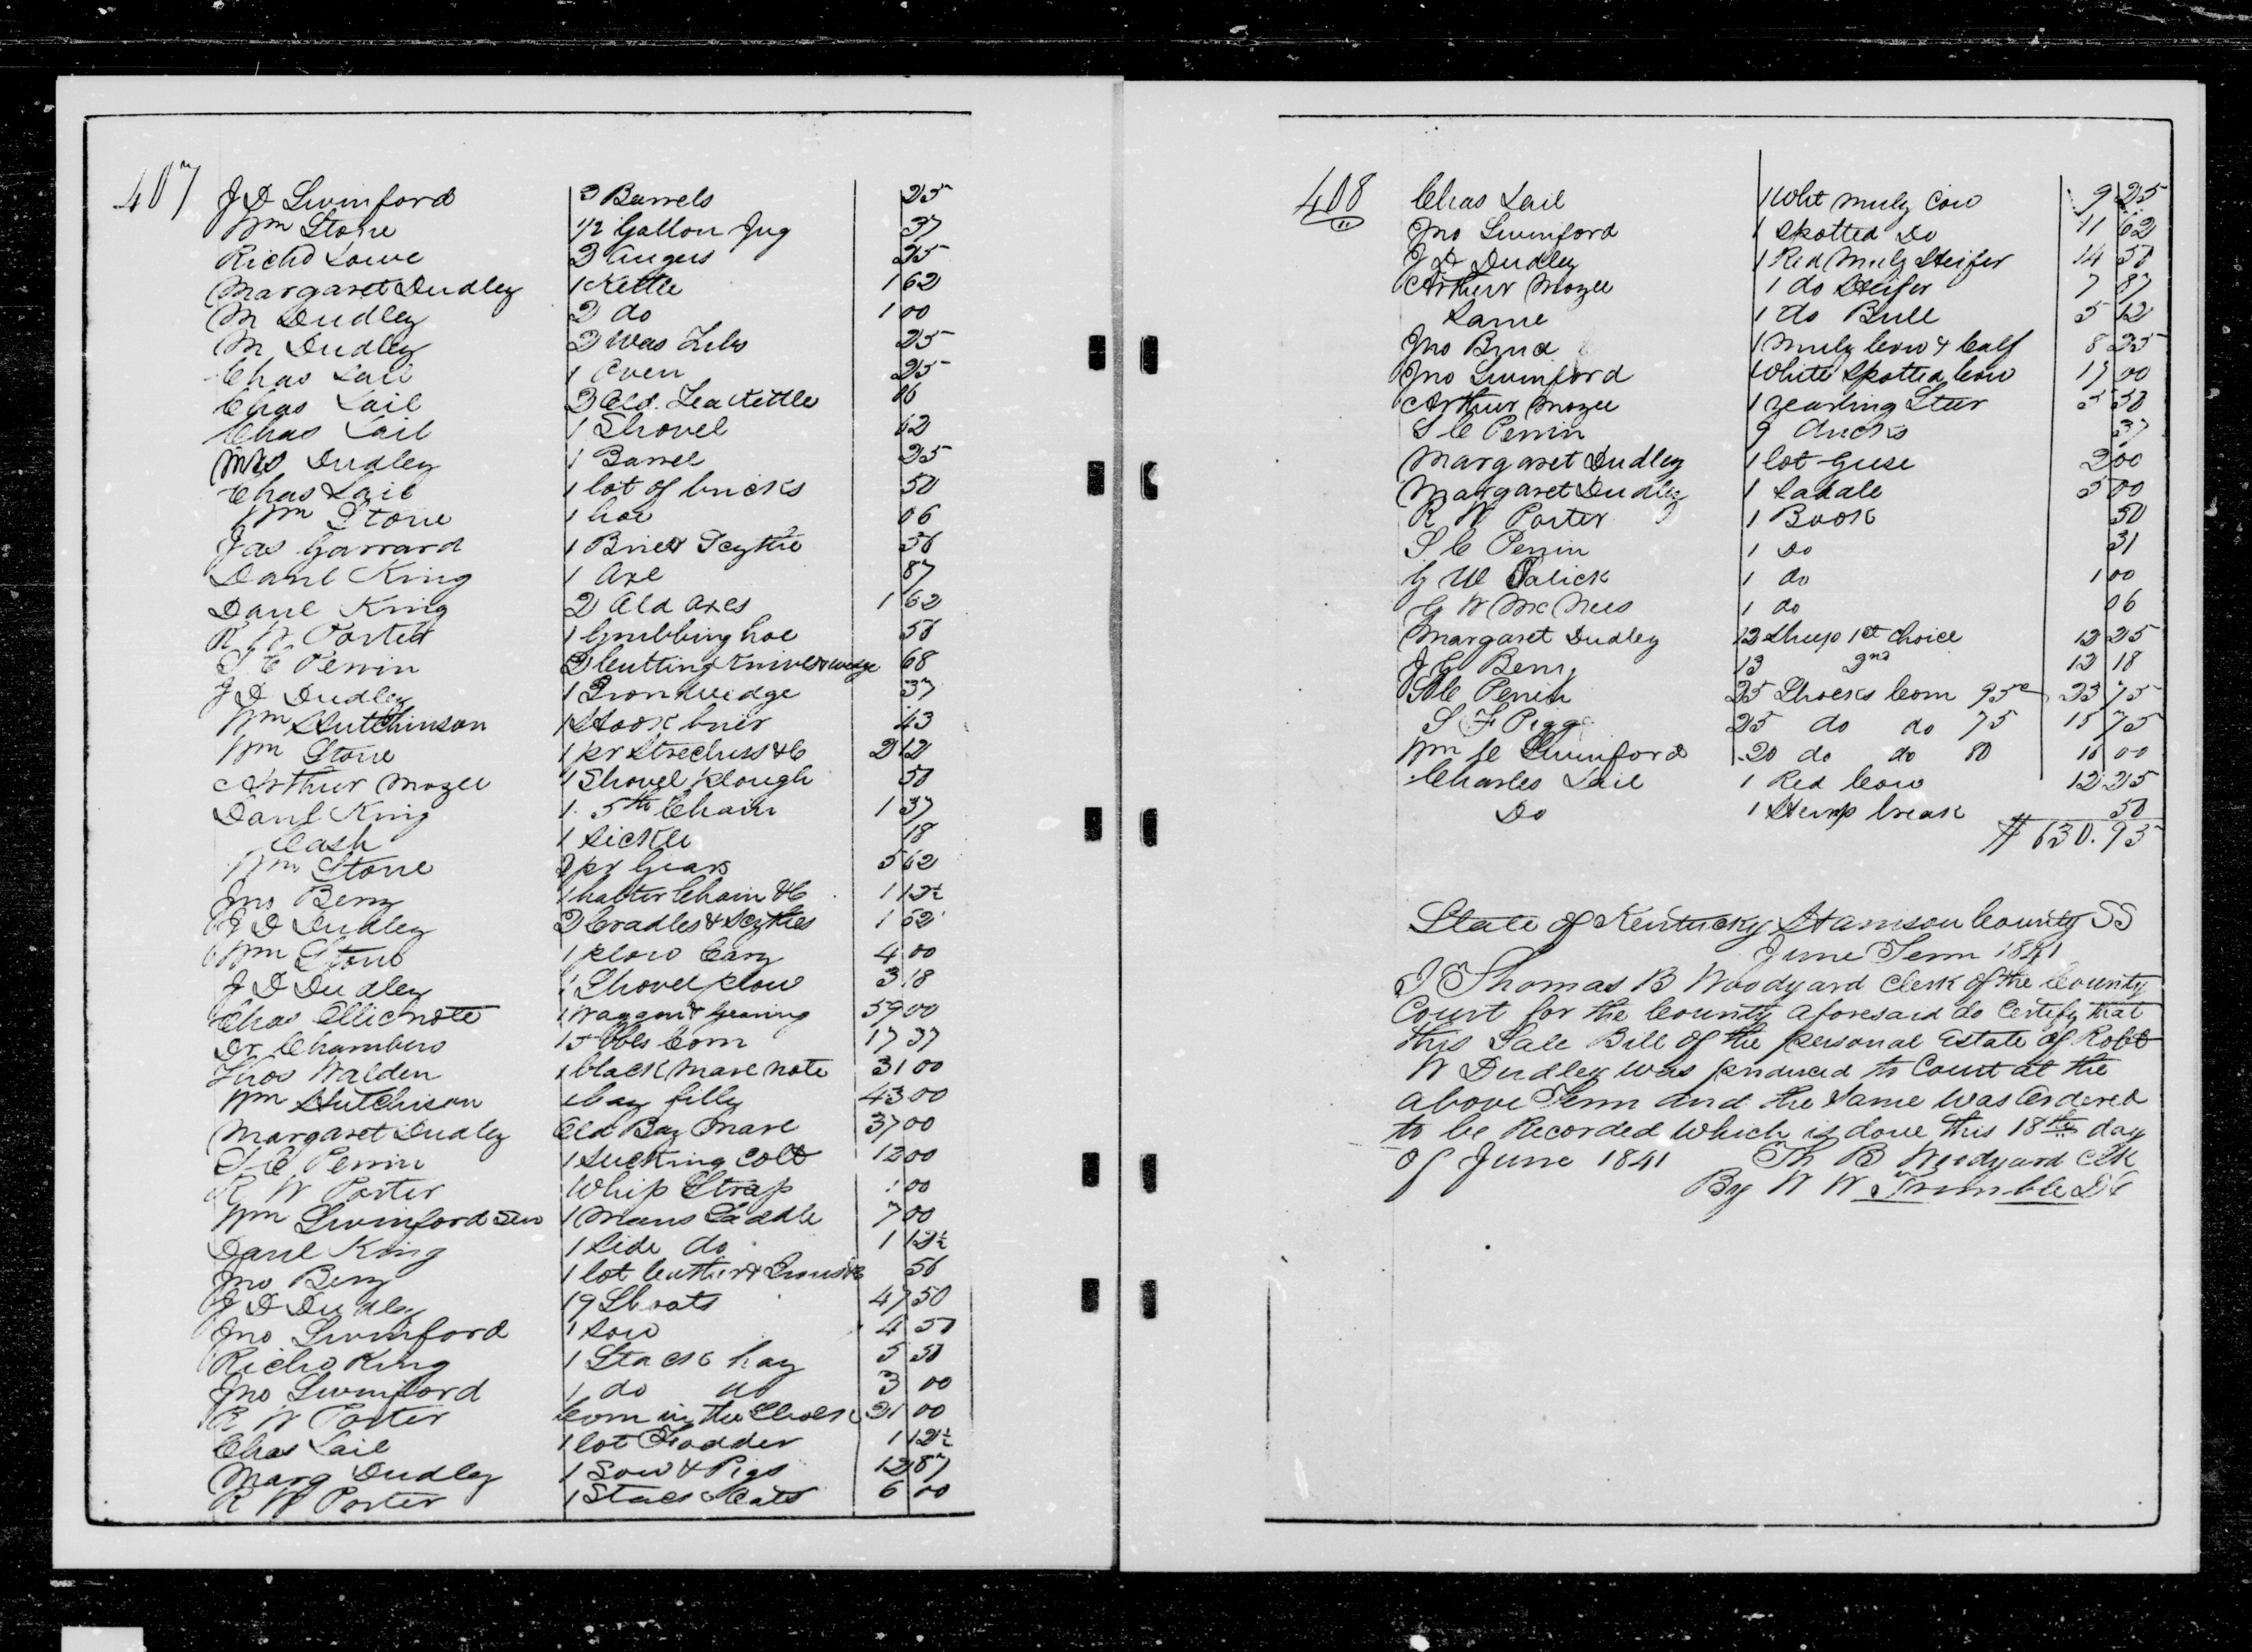 407
J D Swinford 3 Barrels 25
Wm Stone 1/2 Gallon Jug 37
Richd Lowe 2 augers 25
Margaret Dudley 1 Kettle 1 62
M Dudley 2 do 1 00
M Dudley 2 Was Tubs 25
Chas Lail 1 Oven 25
Chas Lail 2 Old Tea Kettle 06
Chas Lail 1 Shovel 12
Mrs Dudley 1 Barrel 25
Chas Lail 1 lot of bricks 50
Wm Stone 1 hoe 06
Jas Garrard 1 Brier Scythe 56
Danl King 1 Axe 87
Danl King 2 Old axes 1 62
R W Porter 1 Grubbing hoe 56
S C Perrin 2 Cutting Knives & wedge 68
J D Dudley 1 Iron wedge 37
Wm Hutchinson 1 Hook brier 43
Wm Stone 1 pr Strechers &C 2 12
Arthur Mozee 1 Shovel plough 50
Danl King 1 5th Chain 1 37
Cash 1 Sickle 18
Wm Stone 2 pr Gears 5 62
Jno Berry 1 halter Chain &C 1 12½
J D Dudley 2 Cradles & Scythes 1 62
Wm Stone 1 plow Cary 4 00
J D Dudley 1 Shovel plow 3 18
Chas Ellis note 1 Waggon & Gearing 59 00
Dr Chambers 15 bbls Corn 17 37
Thos Walden 1 black Mare note 31 00
Wm Hutchison 1 bay filly 43 00
Margaret Dudley Old Bay Mare 37 00
S C Perrin 1 Sucking Colt 12 00
R W Porter Whip Strap 1 00
Wm Swinford Sen 1 Mans Saddle 7 00
Danl King 1 Side do 1 12½
Jno Berry 1 lot leather & Irons &C 56
J D Dudley 19 Shoats 47 50
Jno Swinford 1 Sow 4 50
Richd King 1 Stack hay 5 50
Jno Swinford 1 do do 3 00
R W Porter Corn in the Shock 21 00
Chas Lail 1 lot Fodder 1 12½
Marg Dudley 1 Sow & Pigs 12 87
R W Porter 1 Stack Oats 6 00
408
Chas Lail 1 Wht muly Cow 9 25
Jno Swinford 1 Spotted Do 11 62
J D Dudley 1 Red Muly Heifer 14 50
Arthur Mozee 1 do Heifer 7 87
Same 1 do Bull 5 12
Jno Brud 1 Muly Cow & Calf 8 25
Jno Swinford White Spotted Cow 17 00
Arthur Mozee 1 yearling Steer 5 50
S C Perrin 9 ducks 37
Margaret Dudley 1 lot Geese 2 00
Margaret Dudley 1 Saddle 5 00
R W Porter 1 Book 50
S C Perrin 1 Do 31
G W 1 do 1 00
G W McNees 1 do 06
Margaret Dudley 12 Sheep 1st Choice 12 25
J G Berry 13 2nd 12 18
S C Perrin 25 Shocks Corn 95c 23 75
S F Pigg 25 do do 75 18 75
Wm C Swinford 20 do do 80 16 00
Charles Lail 1 Red Cow 12 25
Do 1 Hemp break 50
$630.93
State of Kentucky Harrison County SS
June Term 1841
I Thomas B Woodyard Clerk of the County
Court for the County aforesaid do Certify that
this Sale Bill of the personal Estate of Robt
W Dudley was produced to Court at the
above Term and the Same was Ordered
to be Recorded which is done this 18th day
of June 1841 Th B Woodyard Clk
By W W Trimble DC